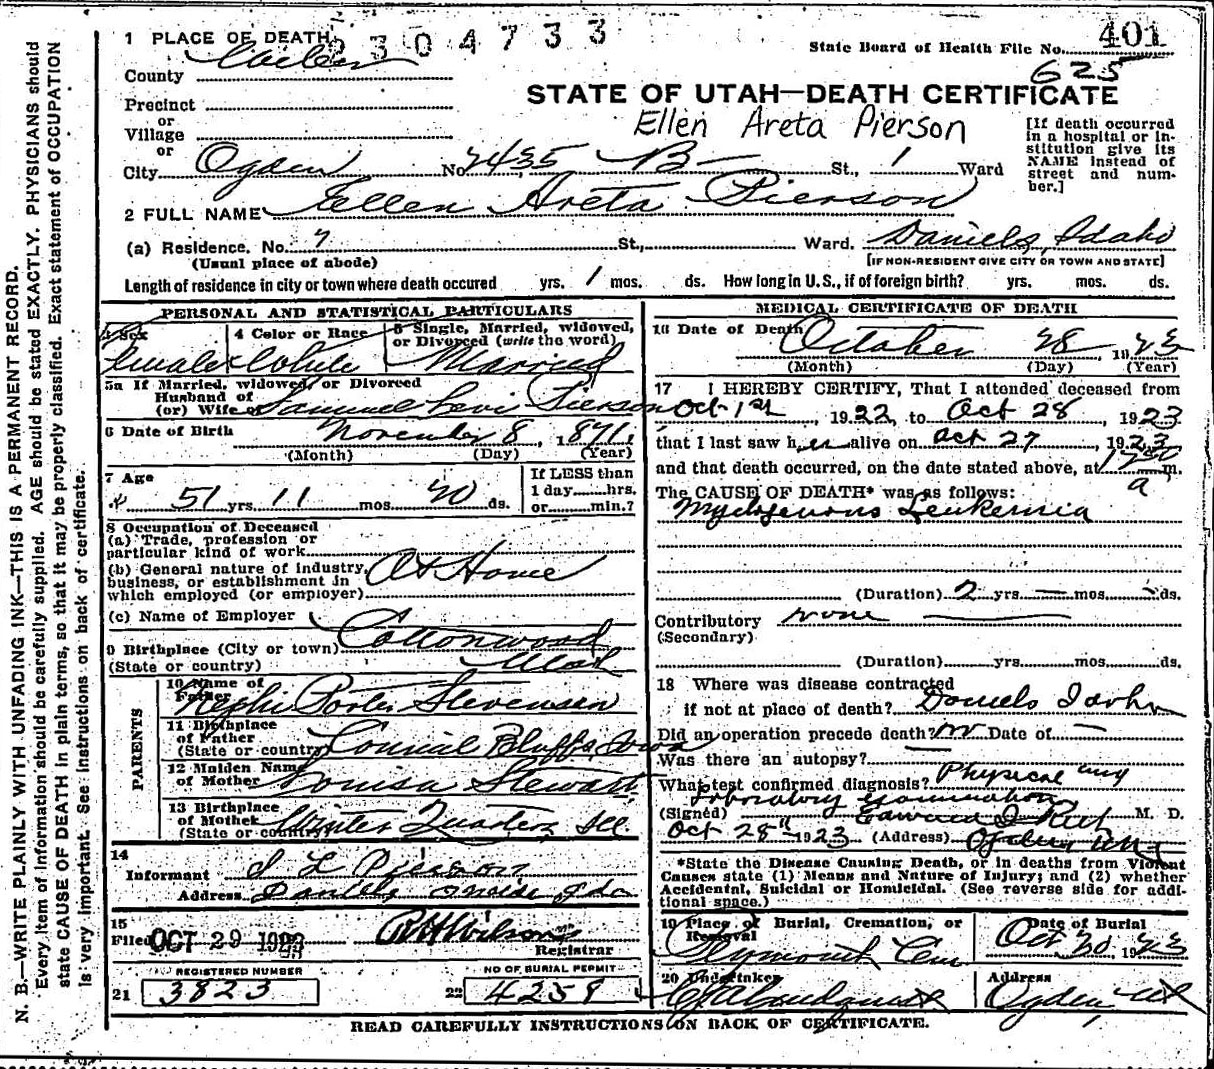 2304733
401
State Board of Health File No.
625
1 PLACE OF DEATH
County Weber
STATE OF UTAH—DEATH CERTIFICATE
Ellen Areta Pierson
Precinct
or
Village
or
City Ogden No. 2435 B St., 1 Ward
[If death occurred in a hospital or institution give its NAME instead of street and number.]
2 FULL NAME Ellen Areta Pierson
(a) Residence. No. 7 St., Ward. Daniels, Idaho
(Usual place of abode) [IF NON-RESIDENT GIVE CITY OR TOWN AND STATE]
Length of residence in city or town where death occured yrs. 1 mos. ds. How long in U.S., if of foreign birth? yrs. mos. ds.
PERSONAL AND STATISTICAL PARTICULARS
3 Sex 4 Color or Race 5 Single, Married, widowed, or Divorced (write the word)
Female White Married
5a If Married, widowed, or Divorced
Husband of
(or) Wife of Samuel Levi Pierson
6 Date of Birth November 8, 1871
(Month) (Day) (Year)
7 Age If LESS than
51 yrs 11 mos. 20 ds. 1 day hrs.
or min.?
8 Occupation of Deceased
(a) Trade, profession or
particular kind of work
(b) General nature of industry,
business, or establishment in
which employed (or employer) At Home
(c) Name of Employer
9 Birthplace (City or town) Cottonwood
(State or country) Utah
PARENTS
10 Name of Father Nephi Porter Stevensen
11 Birthplace of Father (State or country) Council Bluffs, Iowa
12 Maiden Name of Mother Louisa Stewart
13 Birthplace of Mother (State or country) Winter Quarters, Ill.
14
Informant S L Pierson
Address Daniels Oneida Ida
15
Filed OCT 29 1923 R H Wilson
Registrar
REGISTERED NUMBER NO OF BURIAL PERMIT
21 3823 22 4259
MEDICAL CERTIFICATE OF DEATH
16 Date of Death October 28, 1923
(Month) (Day) (Year)
17 I HEREBY CERTIFY, That I attended deceased from
Oct 1st, 1922, to Oct 28 1923
that I last saw her alive on Oct 27, 1923
and that death occurred, on the date stated above, at m.
a
The CAUSE OF DEATH* was as follows:
Myelogenous Leukemia
(Duration) 2 yrs. — mos. — ds.
Contributory none
(Secondary)
(Duration) yrs. mos. ds.
18 Where was disease contracted
if not at place of death? Daniels Idaho
Did an operation precede death? no Date of —
Was there an autopsy?
What test confirmed diagnosis? Physical and
Laboratory examination
(Signed) Edward I Rich M. D.
Oct 28th 1923 (Address) Ogden Utah
*State the Disease Causing Death, or in deaths from Violent
Causes state (1) Means and Nature of Injury; and (2) whether
Accidental, Suicidal or Homicidal. (See reverse side for additional space.)
19 Place of Burial, Cremation, or Removal Date of Burial
Plymouth Cem Oct 30, 1923
20 Undertaker Address
Ogden, Ut
READ CAREFULLY INSTRUCTIONS ON BACK OF CERTIFICATE.
N. B.—WRITE PLAINLY WITH UNFADING INK—THIS IS A PERMANENT RECORD.
Every item of information should be carefully supplied. AGE should be stated EXACTLY. PHYSICIANS should
state CAUSE OF DEATH in plain terms, so that it may be properly classified. Exact statement of OCCUPATION
is very important. See instructions on back of certificate.